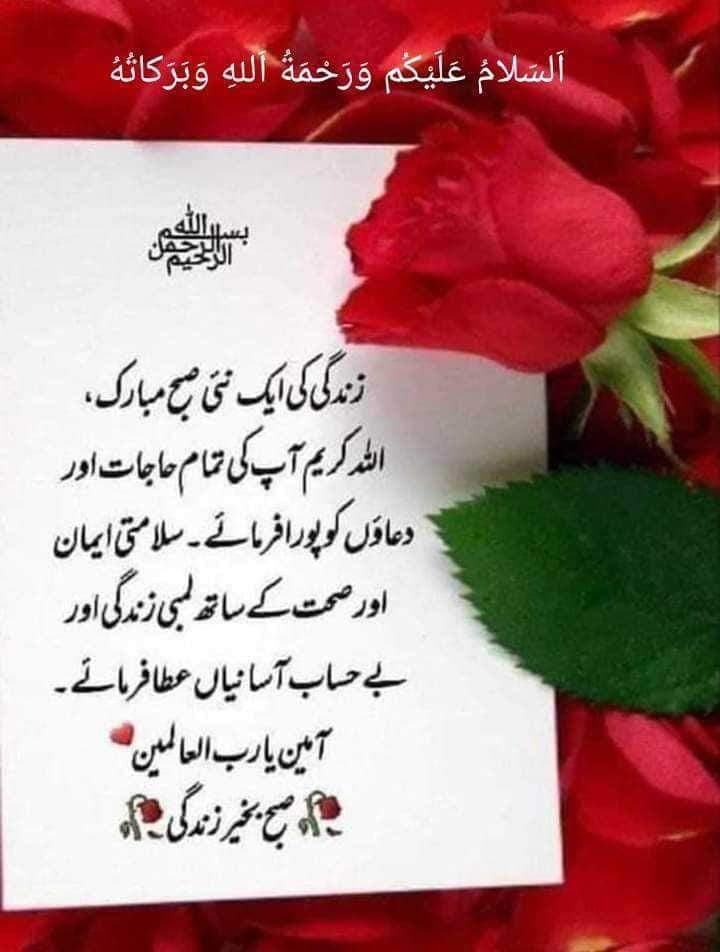 اَلسَلامُ عَلَيْكُم وَرَحْمَةُ اَللهِ وَبَرَكاتُهُ
بسم الله الرحمن الرحيم
زندگی کی ایک نئی صبح مبارک،
اللہ کریم آپ کی تمام حاجات اور
دعاؤں کو پورا فرمائے۔ سلامتی ایمان
اور صحت کے ساتھ لمبی زندگی اور
بے حساب آسانیاں عطا فرمائے۔
آمین یا رب العالمین❤
🥀صبح بخیر زندگی🥀